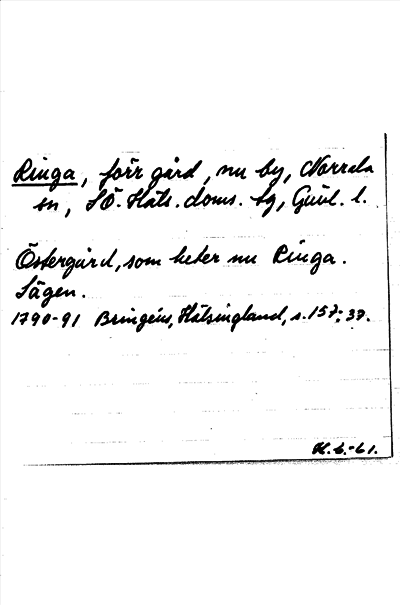 Ringa, förr gård, nu by, Norrala
sn, SÖ. Häls. doms. tg, Gävl. l.
Östergård, som heter nu Ringa.
Sägen.
1790-91 Bringéus, Hälsingland, s. 157; 37.